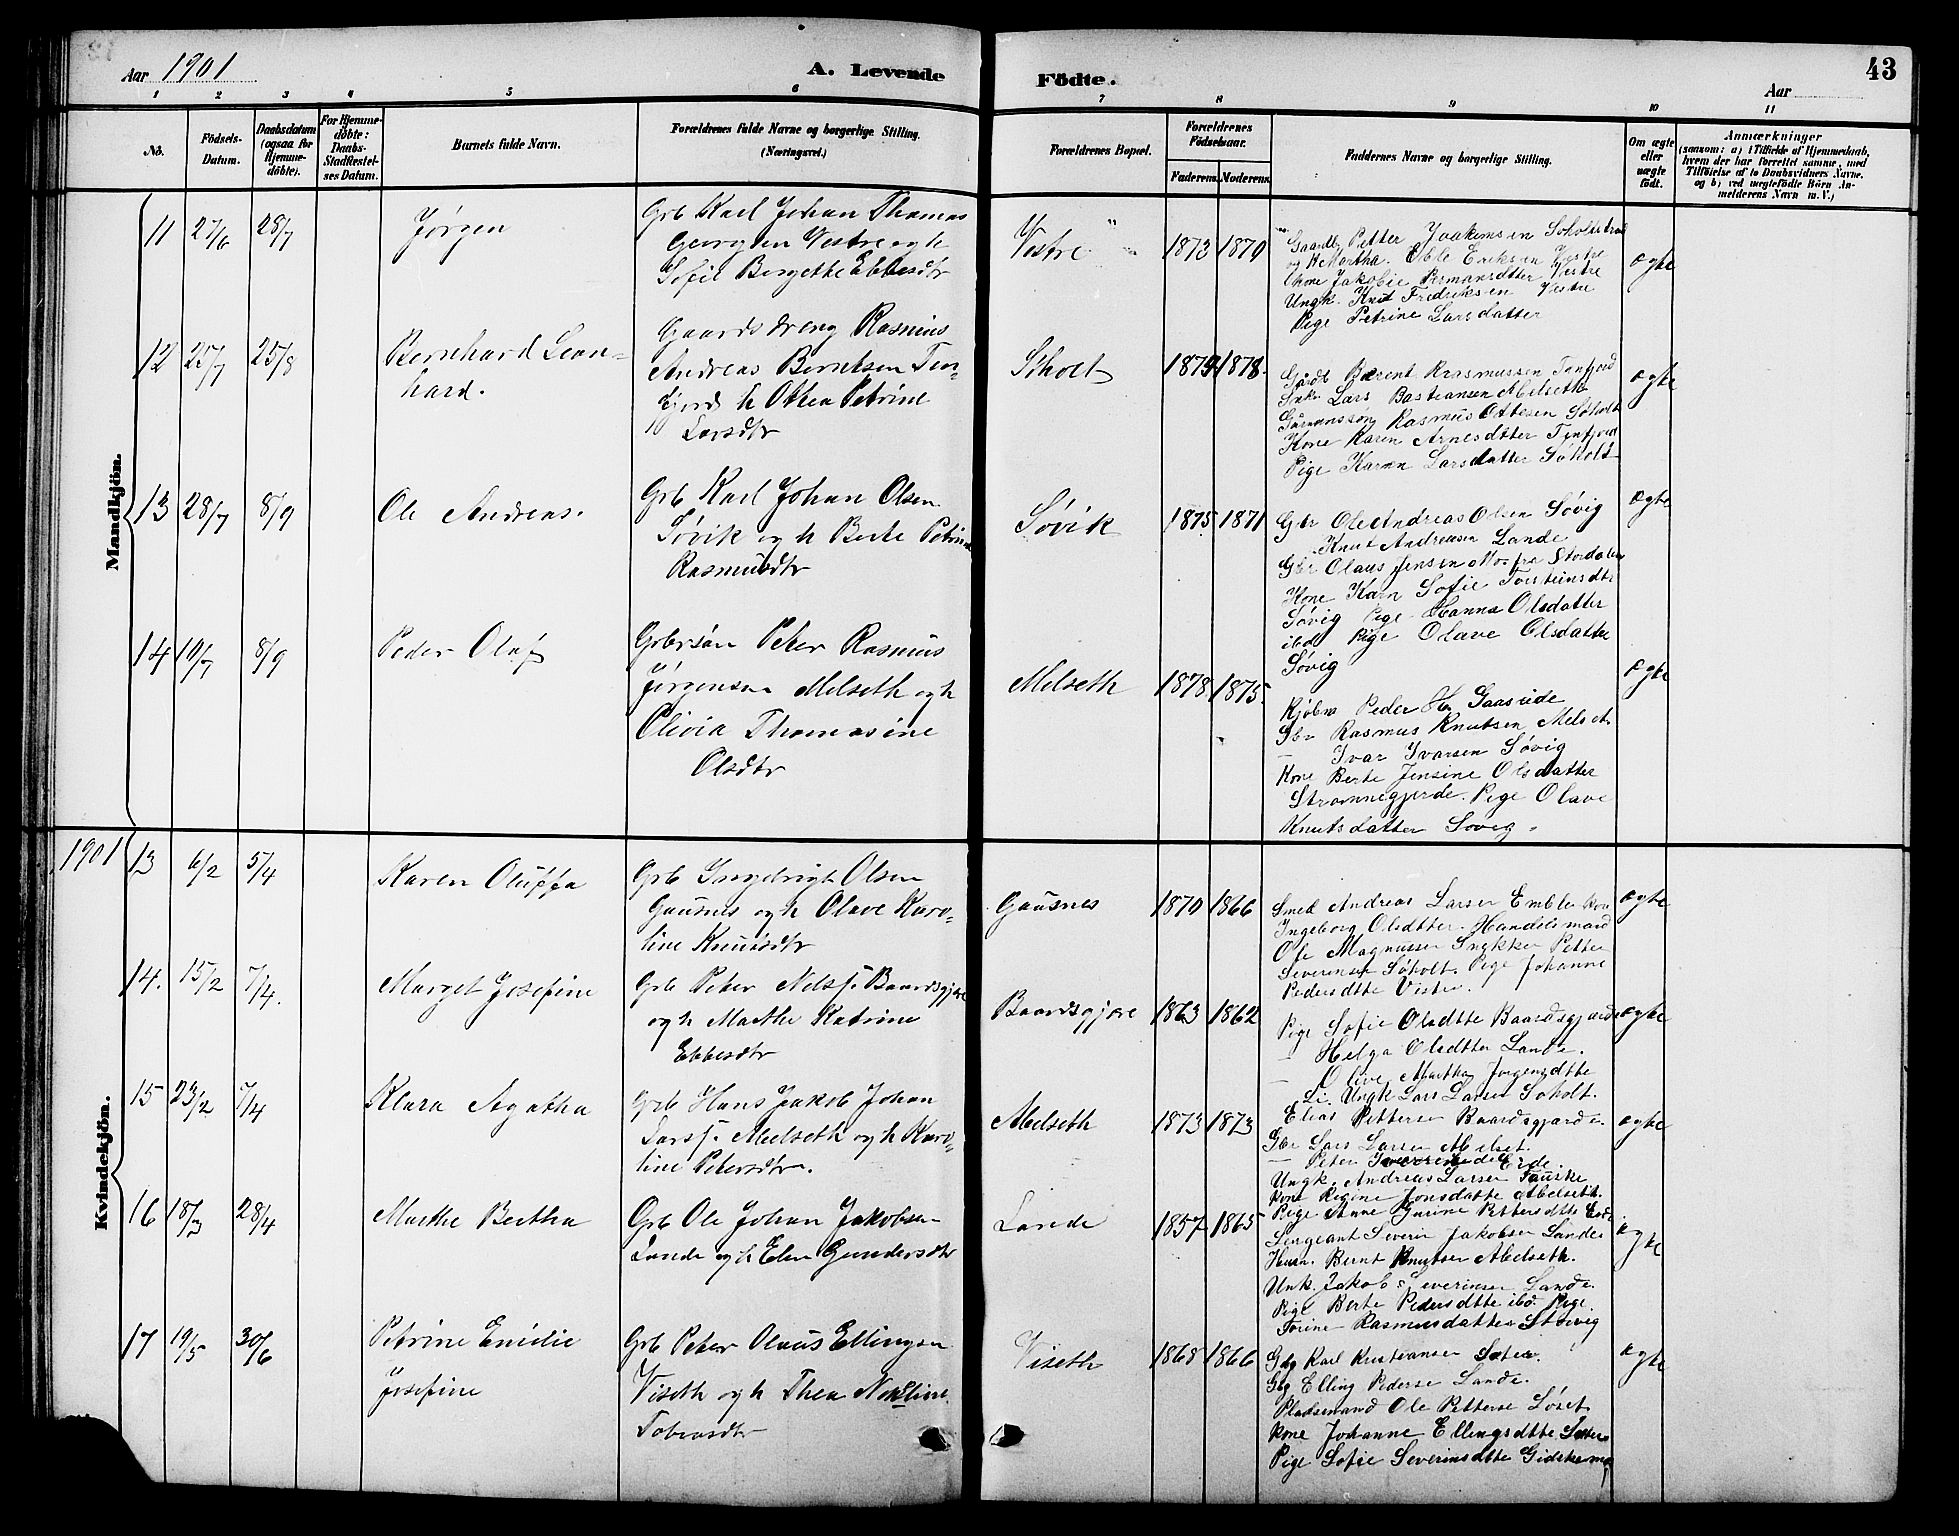 Aar 1901
A. Levende
Födte.
Aar
43
1 2 3 4 5 6 7 8 9 10 11
No.
Födsels-Datum.
Daabsdatum (ogsaa for Hjemmedöbte).
For Hjemmedöbte: Daabs-Stadfæstelses Datum.
Barnets fulde Navn.
Forældrenes fulde Navne og borgerlige Stilling.
(Næringsvei.)
Forældrenes Bopæl.
Forældrenes Födselsaar.
Faderens. Moderens.
Faddernes Navne og borgerlige Stilling.
Om ægte eller uægte födt.
Anmærkninger
(saasom: a) i Tilfælde af Hjemmedaab,
hvem der har forrettet samme, med
Tilföielse af to Daabsvidners Navne,
og b) ved uægtefödte Börn An-
melderens Navn m. V.)
Mandkjön.
11 27/6 28/7 Jørgen
Grb Karl Johan Thomas
Georgsen Vestre og h
Sofie Bergethe Ebbesdtr
Vestre 1873 1870
Gaardb Petter Joakimsen Søholt
og H Martha. Ebbe Eriksen Vestre
Kone Jakobie Hermansdtter Vestre
Ungk. Knut Fredriksen Vestre
Pige Petrine Larsdatter
ægte
12 25/7 25/8 Bernhard Leon-
hard.
Gaardsdreng Rasmus
Andreas Berntsen Ten-
fjord h Othea Petrine
Larsdtr
Søholt 1879 1878.
Gårdb Bærent Krasmussen Tenfjord
Lars Bastiansen Melseth
Gårmanssøn Rasmus Ottesen Søholt
Kone Karen Arnesdtter Tenfjord
Pige Karen Larsdatter Søholt
ægte
13 28/7 8/9 Ole Andreas.
Grb Karl Johan Olsen
Søvik og h Berte Petrine
Rasmusdtr
Søvik 1875 1871
Gbr Ole Andreas Olsen Søvig
Knut Andreasen Lande
Gbr Olaus Jensen Mo fra Stordalen
Kone Karn Sofie Torsteinsdtr
Søvig Pige Hanna Olsdatter
ibd Pige Olave Olsdatter
Søvig
ægte
14 10/7 8/9 Peder Oluf
Grbrsøn Peter Rasmus
Jørgensen Melseth og h
Olivia Thomasine
Olsdtr
Melseth 1878 1875.
Kjøbm Peder Hr Gaaseide
Gbr Rasmus Knutsen Melset
— Ivar Ivarsen Søvig
Kone Berte Jensine Olsdatter
Strømmegjerde. Pige Olave
Knutsdatter Søvig.
ægte
1901
Kvindekjön.
13 6/2 5/4 Karen Oluffa
Grb Ingebrigt Olsen
Gausnes og h Olave Karo-
line Knutsdtr
Gausnes 1870 1866
Smed Andreas Larsen Emblem kone
Ingeborg Olsdtter. Handelsmand
Ole Magnussen Ungkar Petter
Severinsen Søholt. Pige Johanne
Pedersdtte Vistre.
ægte
14. 15/2 7/4. Marget Josefine
Grb Peter Nilss. Baardsgjære
og h Marthe Katrine
Ebbesdtr
Baardsgjære 1863 1862
Pige Sofie Olsdtte Baardsgjærde
— Helga Olsdtter Lande.
— Olive Martha Jørgensdtte
Li. Ungk Lars Larsen Søholt.
Elias Pettersen Baardsgjærde.
ægte
15 23/2 7/4 Klara Agatha
Grb Hans Jakob Johan
Larss. Melseth og h Karo-
line Petersdtr.
Melseth 1873 1873
Gbr Lars Larsen Melset.
— Peter Iversen Eide
Ungk. Andreas Larsen Fauske
kone Regine Jonsdatte Melseth.
Pige Anne Gurine Pettersdtte Eide
ægte
16 18/3 28/4 Marthe Bertha
Grb Ole Johan Jakobsen
Lande og h Elen Gundersdtr
Lande 1857 1865
Sergeant Severin Jakobsen Lande
Husm. Bernt Knutsen Melseth.
Unk. Jakob Severinsen Lande.
Pige Berte Pedersdtte ibd. Pige.
Torine Rasmusdatter Støvig
ægte
17 19/5 30/6 Petrine Emilie
Josefine
Grb Peter Olaus Ellingsen
Viseth og h Thea Nekoline
Tobiasdtr
Viseth 1868 1866
Gbg Karl Kristiansen Sætre.
Gbg Elling Pederse Lande.
Pladsemand Ole Petterse Løset
kone Johanne Ellingsdtte Sætre
Pige Sofie Severinsdtte Gidskemo
ægte